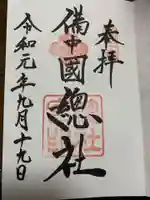 奉拝
備中國總社
令和元年九月十九日